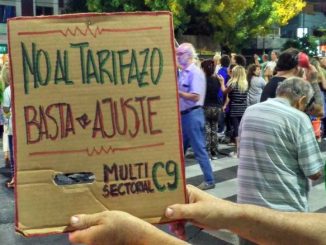 NO AL TARIFAZO
BASTA DE AJUSTE
MULTI
SECTORIAL C9